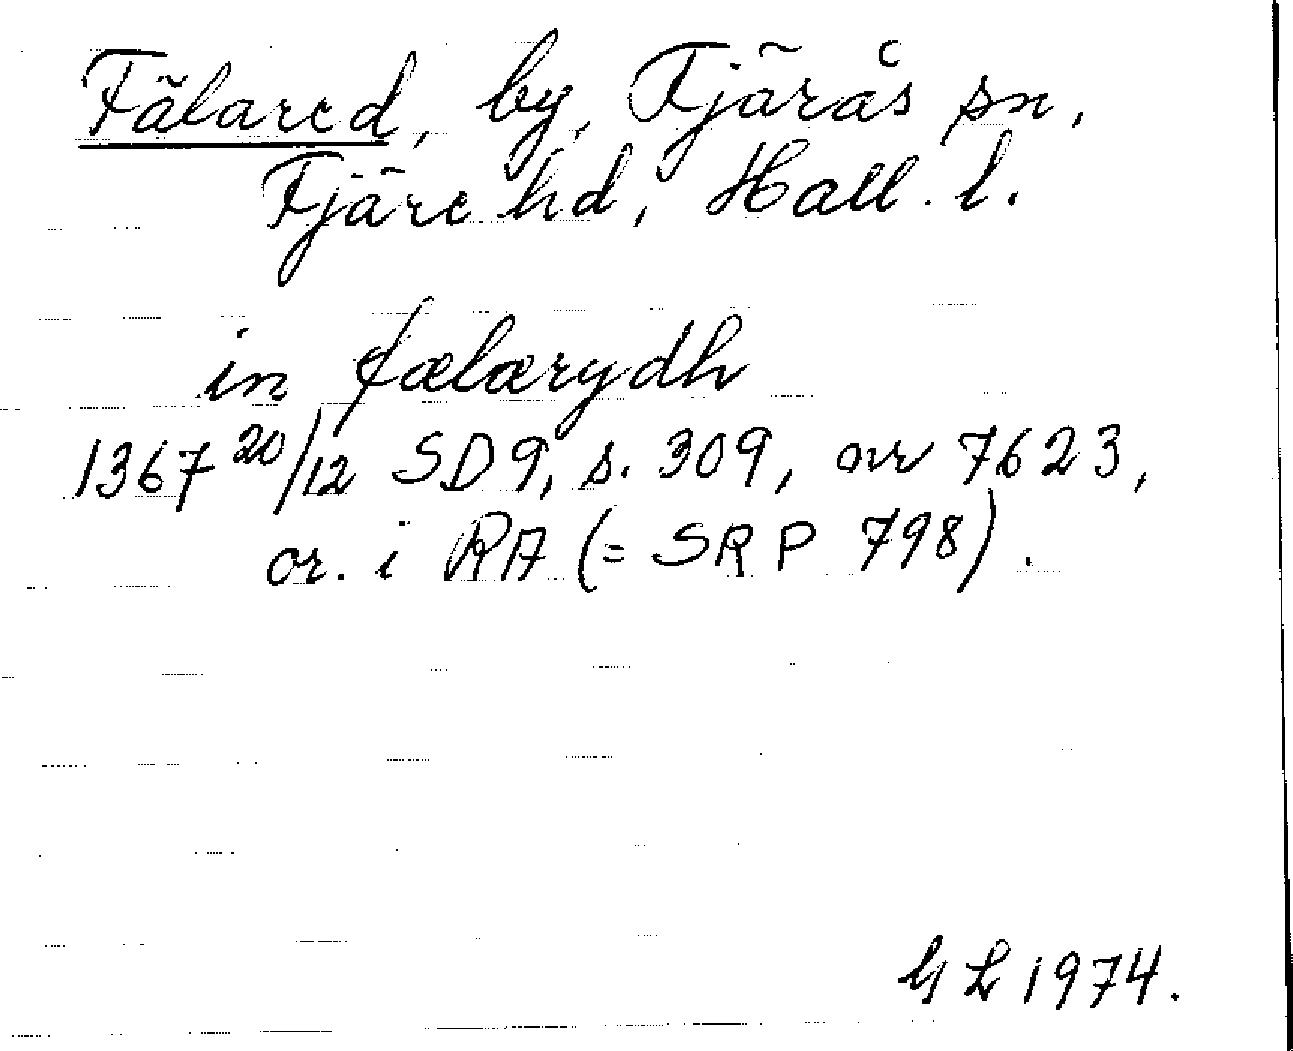 Fälared, by, Fjärås sn,
Fjäre hd, Hall. l.
in fælærydh
1367 20/12 SD 9, s. 309, nr 7623,
or. i RA (= SRP 798).
GL 1974.